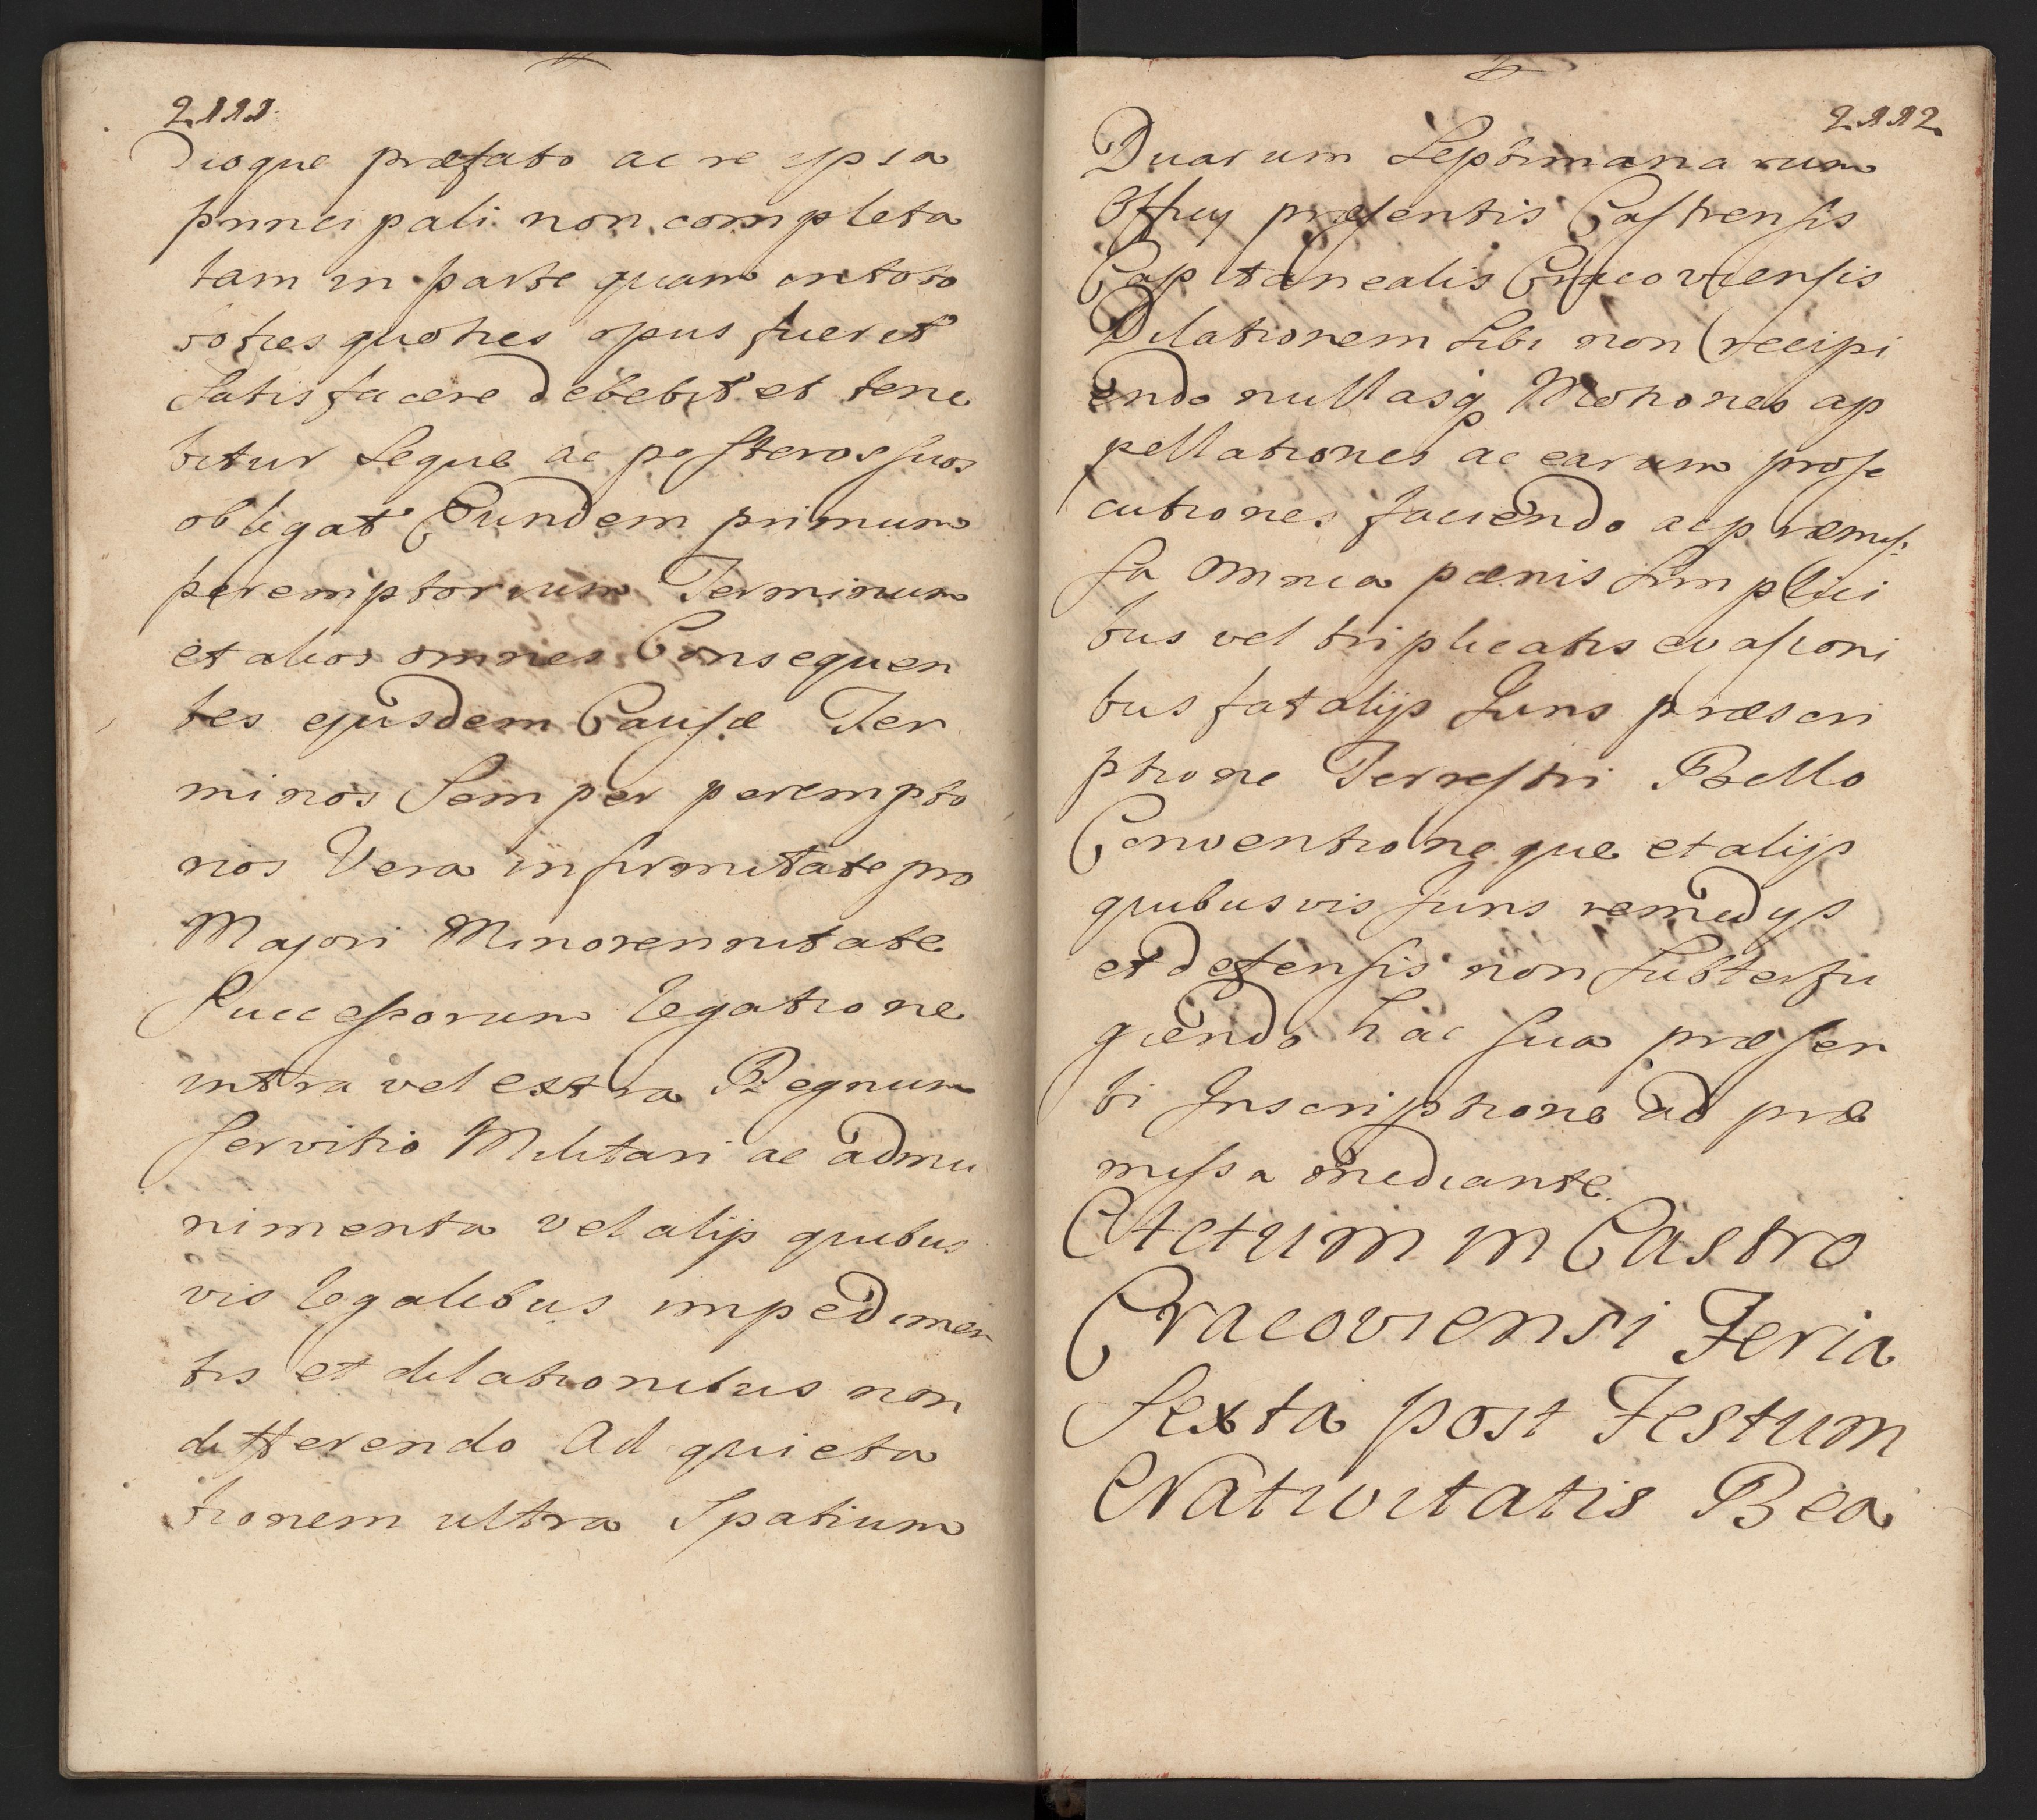 2111
dioque præfato ac re ipsa
principali non completa
tam in parte quam in toto
toties quoties opus fuerit
Satisfacere debebit et tene
bitur Seque ac posteros suos
obligat Eundem primum
peremptorium Terminum
et alios omnes Consequen
tes ejusdem Causæ Ter
minos Semper perempto
rios Vera infirmitate pro
Majori Minorennitate
Successorum legatione
intra vel extra Regnum
servitio Militari ac admu
nimenta vel alijs quibus
vis legalibus impedimen
tis et dilationibus non
differendo Ad quieta
tionem ultra Spatium
2112
Duarum Septimanarum
Officij præsentis Castrensis
Capitanealis Cracoviensis
Dilationem Sibi non recipi
endo nullasq Motiones ap
pellationes ac earum prose
cutiones faciendo ac præmis
sa omnia pænis simplici
bus vel triplicatis evasioni
bus fatalijs Juris præscri
ptione Terrestri Bello
Conventioneque et alijs
quibusvis Juris remedijs
et defensis non Subterfu
giendo hac sua præsen
ti Inscriptione ad præ
missa mediante
Actum in Castro
Cracoviensi Feria
Sexta post Festum
Nativitatis Bea